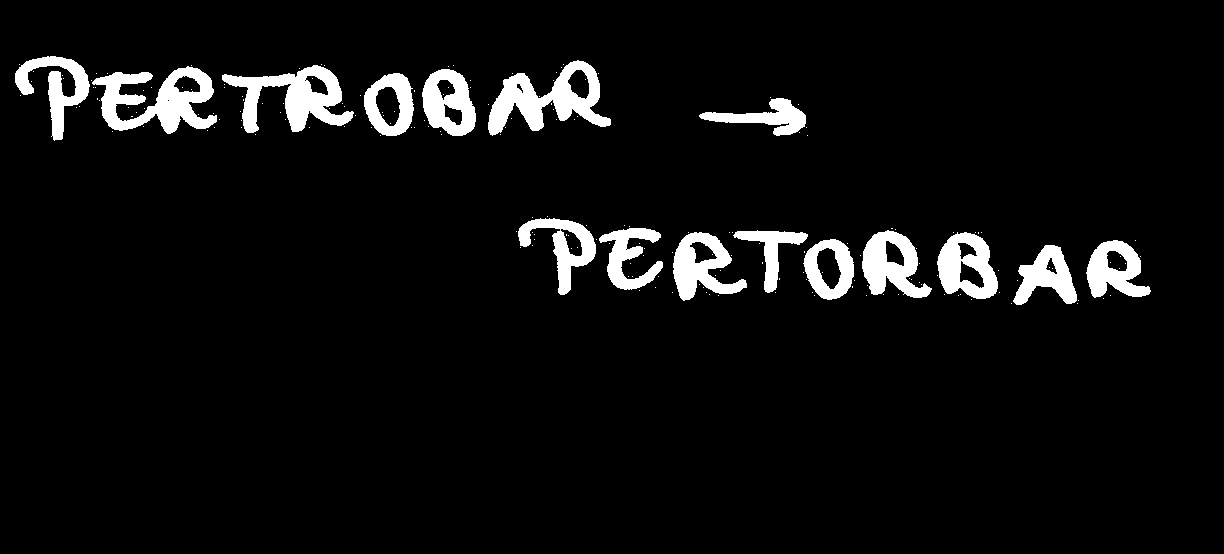 PERTROBAR →
PERTORBAR